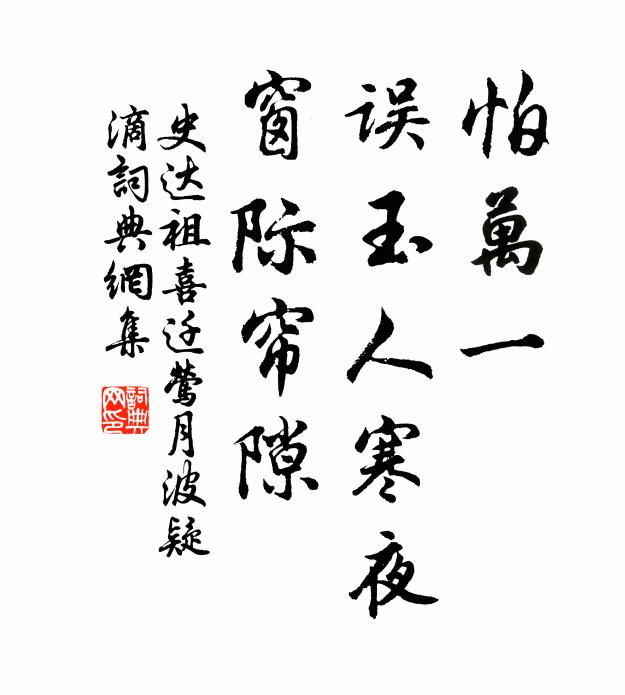 怕萬一
误玉人寒夜
窗际帘隙
史达祖喜迁莺月波疑
滴詞典網集
詞典
网印